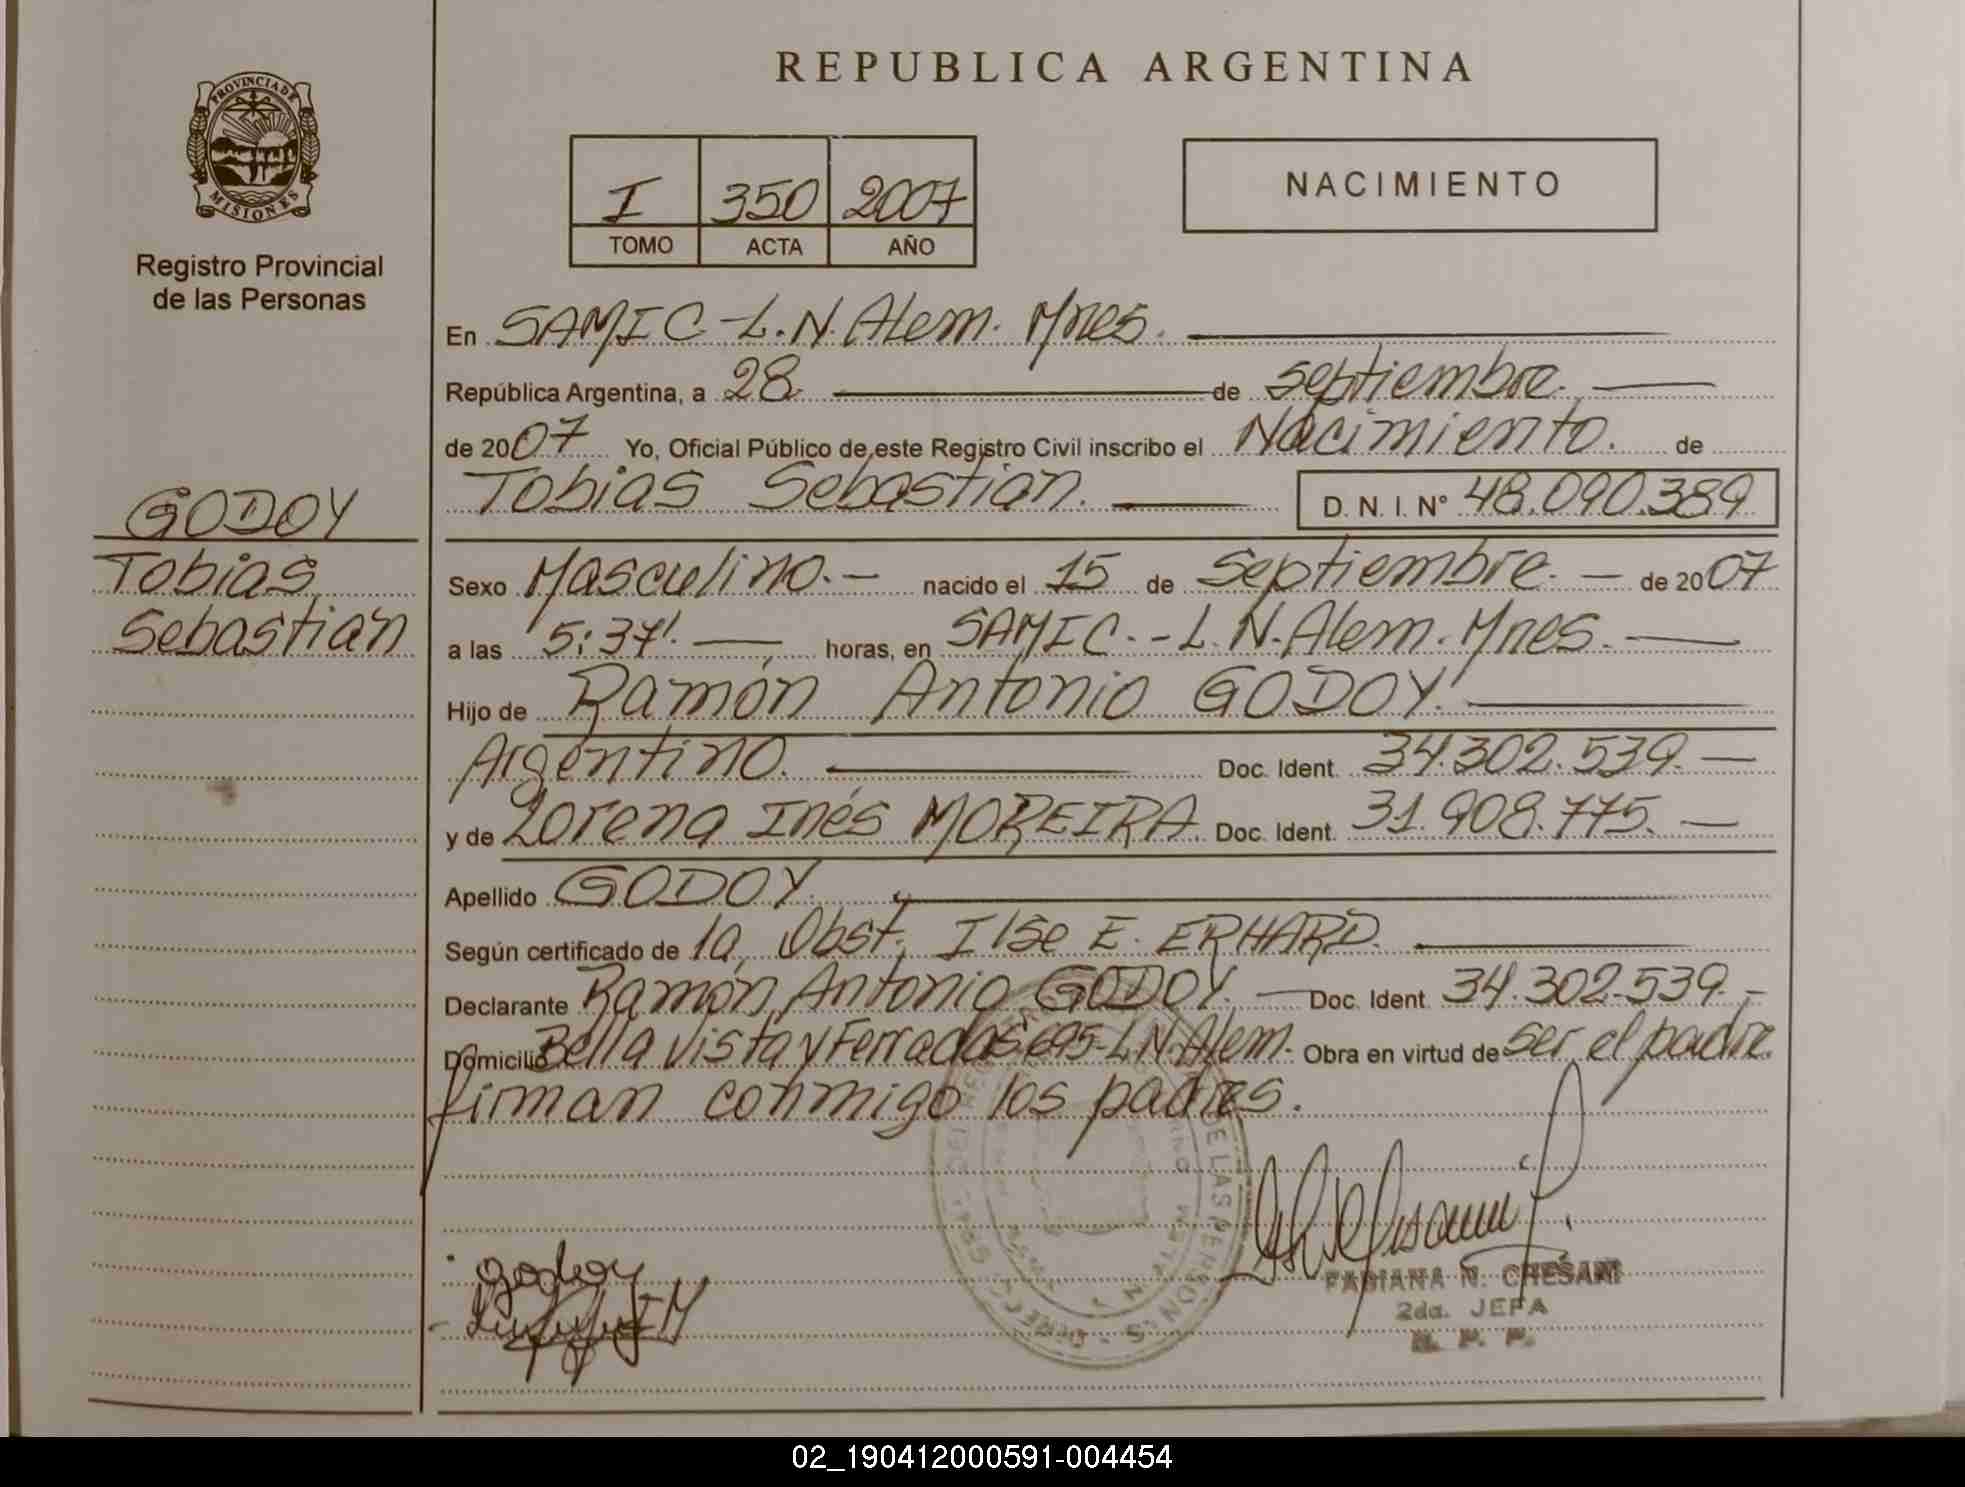 REPUBLICA ARGENTINA
PROVINCIA DE
MISIONES
Registro Provincial
de las Personas
I 350 2007
TOMO ACTA AÑO
NACIMIENTO
En SAMIC - L. N. Alem. Mnes.
República Argentina, a 28 de septiembre.
de 2007 Yo, Oficial Público de este Registro Civil inscribo el Nacimiento. de
Tobias Sebastian. D. N. I. Nº 48.090.389
GODOY
Tobias
Sebastian
Sexo Masculino.- nacido el 15 de Septiembre. - de 2007
a las 5:37'. horas, en SAMIC.- L. N. Alem. Mnes.
Hijo de Ramón Antonio GODOY.
Argentino. Doc. Ident. 34.302.539.-
y de Lorena Inés MOREIRA Doc. Ident. 31.908.775.-
Apellido GODOY.
Según certificado de la Obst. Ilse E. ERHARD.
Declarante Ramón Antonio GODOY. - Doc. Ident. 34.302.539.-
Domicilio Bella Vista y Ferradas 695- L.N. Alem. Obra en virtud de ser el padre
firman conmigo los padres.
DE LAS PERSONAS
godoy
FABIANA N. CHESANI
2da. JEFA
R. P. P.
02_190412000591-004454